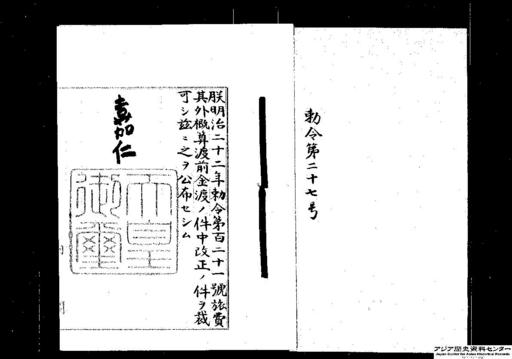 勅令第二十七号
朕明治二十二年勅令第百二十一號旅費
其外概算渡前金渡ノ件中改正ノ件ヲ裁
可シ茲ニ之ヲ公布セシム
嘉仁
天皇
御璽
アジア歴史資料センター
Japan Center for Asian Historical Records